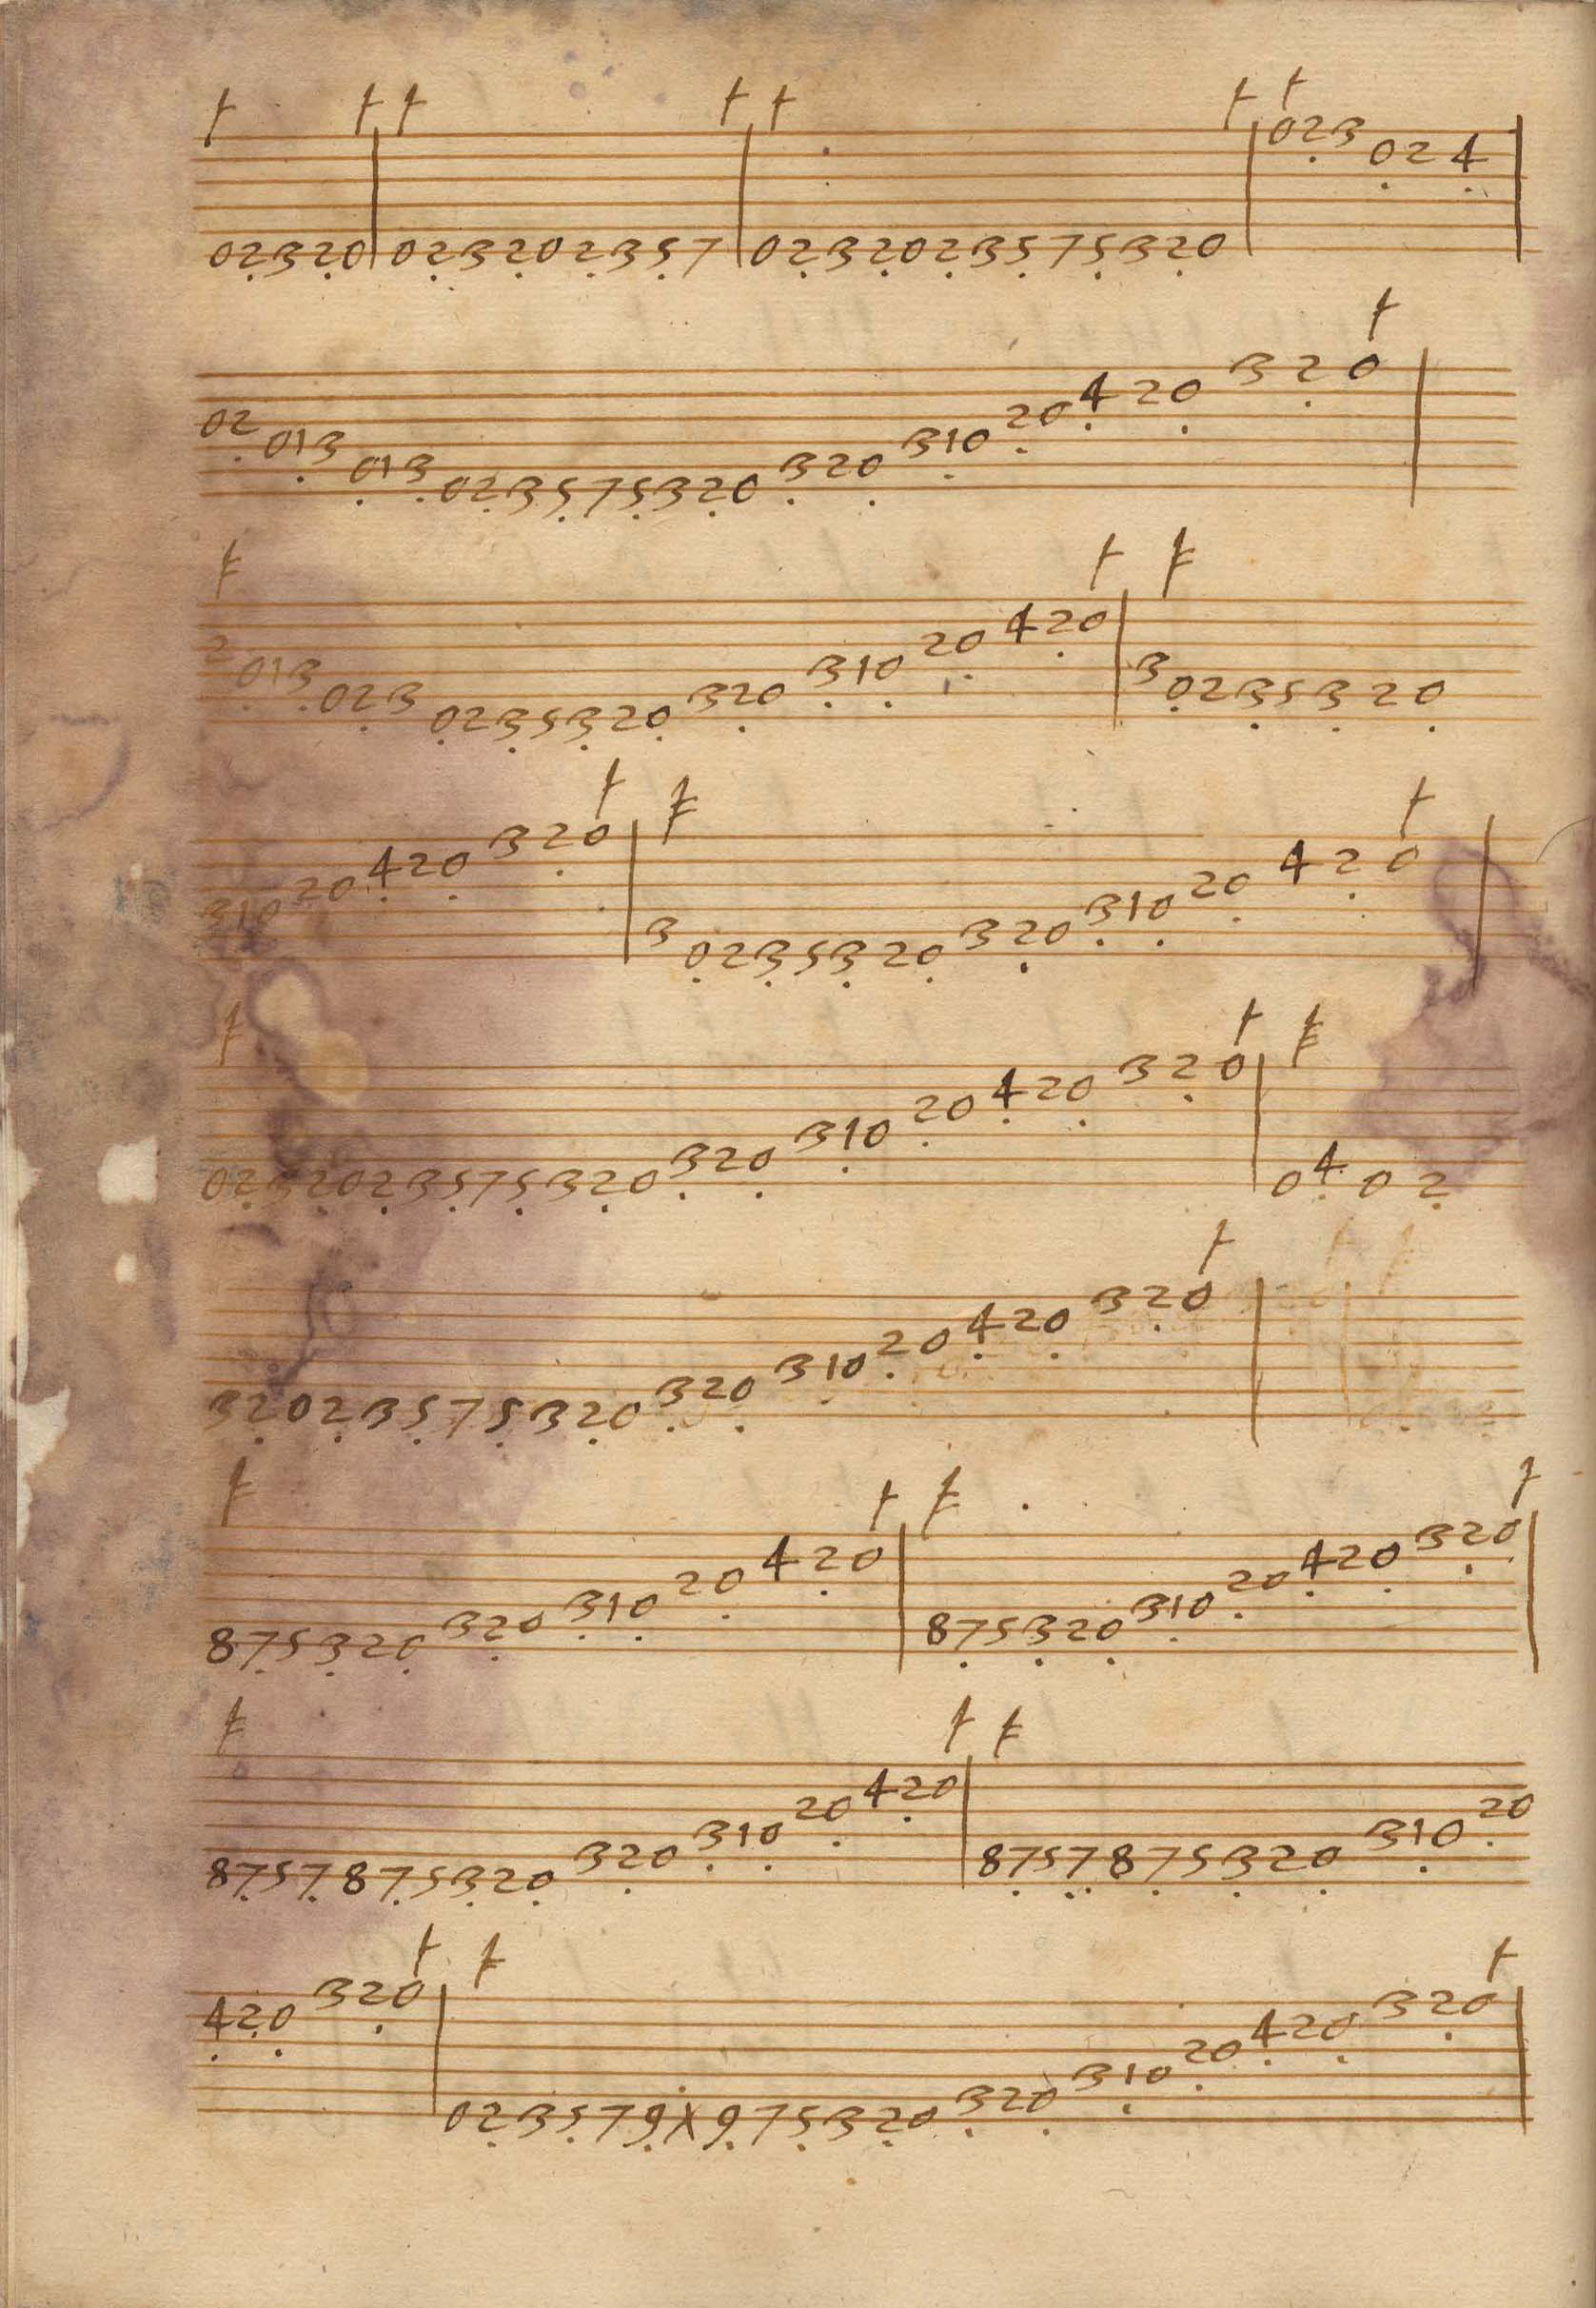 02320 023202357 0232023575320 023 024
02 013 013 023575320 320 310 20 420 320
2 013 023 0235320 320 310 20 420 3 0235320
310 20 420 320 3 0235320 320 310 20 420
0232023575320 320 310 20 420 320 0402
32023575320 320 310 20 420 320
875320 320 310 20 420 875320 310 20 420 320
8757875320 320 310 20 420 8757875320 310 20
420 320 023579X975320 320 310 20 420 320